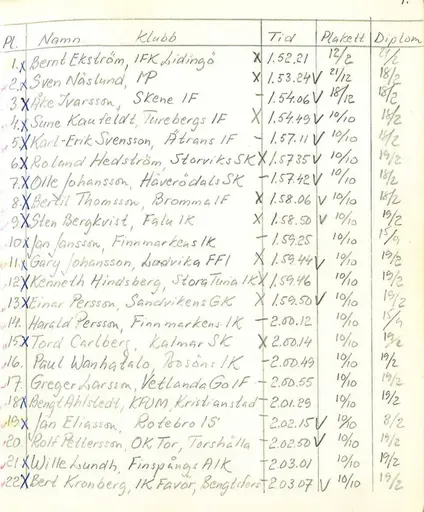 Pl. Namn Klubb Tid Plakett Diplom
1. X Bernt Ekström, IFK Lidingö X 1.52.21 12/2 19/2
2. X Sven Näslund, MP X 1.53.24 V 21/12 18/2
3 X Åke Ivarsson, Skene IF - 1.54.06 V 18/12 18/2
4. X Sune Kaufeldt, Turebergs IF X 1.54.49 V 10/10 18/2
5 X Karl-Erik Svensson, Ätrans IF - 1.57.11 V 10/10 18/2
6 X Roland Hedström, Storviks SK X 1.57.35 V 10/10 19/2
7. X Olle Johansson, Häverödals SK - 1.57.42 V 10/10 18/2
8 X Bertil Thomsson, Bromma IF X 1.58.06 V 10/10 18/2
9 X Sten Bergkvist, Falu IK X 1.58.50 V 10/10 19/2
10 X Jan Jansson, Finnmarkens IK - 1.59.25 10/10 15/9
11. X Gary Johansson, Ludvika FFI X 1.59.44 V 19/2
12 X Kenneth Hindsberg, Stora Tuna IK X 1.59.46 10/10 19/2
13 X Einar Persson, Sandvikens GK X 1.59.50 V 10/10 19/2
14. Harald Persson, Finnmarkens IK - 2.00.12 10/10 15/9
15 X Tord Carlberg, Kalmar SK X 2.00.14 10/10 19/2
16. Paul Wanhatalo, IK - 2.00.49 10/10 19/2
17. Greger Larsson, Vetlanda Go IF - 2.00.55 10/10 19/2
18 X Bengt Ahlstedt, KFUM, Kristianstad - 2.01.29 10/10 19/2
19 X Jan Eliasson, Rotebro IS - 2.02.15 V 10/10 8/2
20. Rolf Pettersson, OK Tor, Torshälla - 2.02.50 V 10/10 19/2
21 X Wille Lundh, Finspångs AIK - 2.03.01 10/10 19/2
22 X Bert Kronberg, IK Favör, Bengtsfors - 2.03.07 V 10/10 19/2